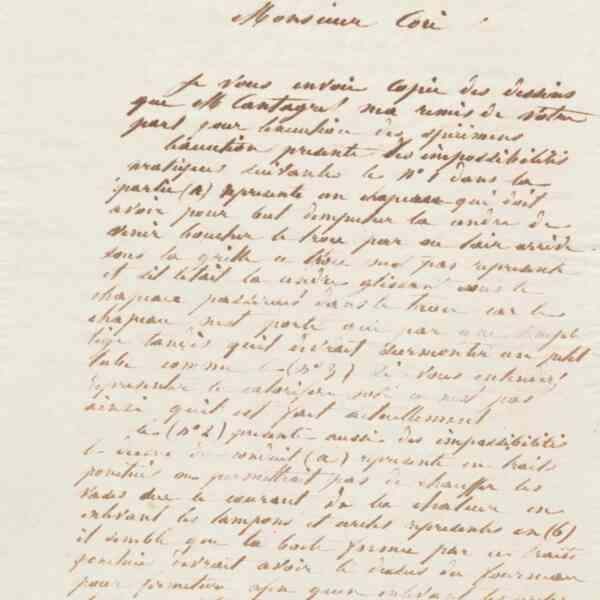 Monsieur Cori
Je vous envoie Copie des dessins
que M Cantagrel ma remis de votre
part pour lexécution des spécimens
lexécution présente des impossibilités
pratiques suivantes le N° 1 dans la
partie (a) represente un chapeau qui doit
avoir pour but dempecher la cendre de
venir boucher le trou par ou lair arrive
sous la grille ce trou nest pas represente
et sil létait la cendre glissant sous le
chapeau passerait dans le trou car le
chapeau nest porté que par une simple
tige tandis quil devrait surmonter un petit
tube comme le (n° 3) Si vous entendez
representer le calorifère ce nest pas
ainsi quil est fait actuellement
le (n° 2) presente aussi des impossibilités
le de conduit (a) represente en traits
ponctués ne permettrait pas de chauffer les
vases due le courant de la chaleur en
enlevant les tampons et representes en (b)
il semble que la boite formée par ces traits
ponctués devrait avoir le dessus du fourneau
pour fermeture afin quen enlevant